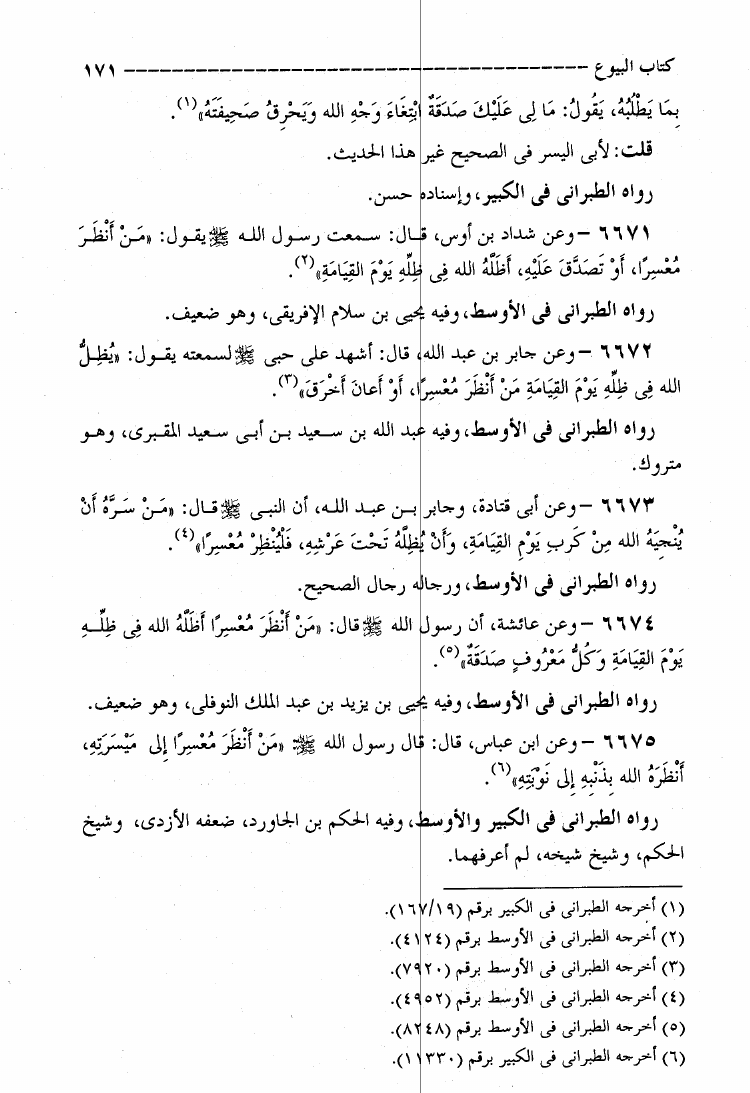 كتاب البيوع ---------------------------------------- ١٧١
بِمَا يَطْلُبُهُ، يَقُولُ: مَا لِى عَلَيْكَ صَدَقَةٌ ابْتِغَاءَ وَجْهِ الله وَيَحْرِقُ صَحِيفَتَهُ»(١).
قلت: لأبى اليسر فى الصحيح غير هذا الحديث.
رواه الطبرانى فى الكبير، وإسناده حسن.
٦٦٧١ – وعن شداد بن أوس، قال: سمعت رسول الله ﷺ يقول: «مَنْ أَنْظَرَ
مُعْسِرًا، أَوْ تَصَدَّقَ عَلَيْهِ، أَظَلَّهُ الله فِى ظِلِّهِ يَوْمَ القِيَامَةِ»(٢).
رواه الطبرانى فى الأوسط، وفيه يحيى بن سلام الإفريقى، وهو ضعيف.
٦٦٧٢ – وعن جابر بن عبد الله، قال: أشهد على حبى ﷺ لسمعته يقول: «يُظِلُّ
الله فِى ظِلِّهِ يَوْمَ القِيَامَةِ مَنْ أَنْظَرَ مُعْسِرًا، أَوْ أَعَانَ أَخْرَقَ»(٣).
رواه الطبرانى فى الأوسط، وفيه عبد الله بن سعيد بن أبى سعيد المقبرى، وهو
متروك.
٦٦٧٣ – وعن أبى قتادة، وجابر بن عبد الله، أن النبى ﷺ قال: «مَنْ سَرَّهُ أَنْ
يُنْجِيَهُ الله مِنْ كَرِبِ يَوْمِ القِيَامَةِ، وَأَنْ يُظِلَّهُ تَحْتَ عَرْشِهِ، فَلْيُنْظِرْ مُعْسِرًا»(٤).
رواه الطبرانى فى الأوسط، ورجاله رجال الصحيح.
٦٦٧٤ – وعن عائشة، أن رسول الله ﷺ قال: «مَنْ أَنْظَرَ مُعْسِرًا أَظَلَّهُ الله فِى ظِلِّهِ
يَوْمَ القِيَامَةِ وَكُلُّ مَعْرُوفٍ صَدَقَةٌ»(٥).
رواه الطبرانى فى الأوسط، وفيه يحيى بن يزيد بن عبد الملك النوفلى، وهو ضعيف.
٦٦٧٥ – وعن ابن عباس، قال: قال رسول الله ﷺ: «مَنْ أَنْظَرَ مُعْسِرًا إِلى مَيْسَرَتِهِ،
أَنْظَرَهُ الله بِذَنْبِهِ إِلى تَوْبَتِهِ»(٦).
رواه الطبرانى فى الكبير والأوسط، وفيه الحكم بن الجاورد، ضعفه الأزدى، وشيخ
الحكم، وشيخ شيخه، لم أعرفهما.
(١) أخرجه الطبرانى فى الكبير برقم (١٦٧/١٩).
(٢) أخرجه الطبرانى فى الأوسط برقم (٤١٢٤).
(٣) أخرجه الطبرانى فى الأوسط برقم (٧٩٢٠).
(٤) أخرجه الطبرانى فى الأوسط برقم (٤٩٥٢).
(٥) أخرجه الطبرانى فى الأوسط برقم (٨٢٤٨).
(٦) أخرجه الطبرانى فى الكبير برقم (١١٣٣٠).